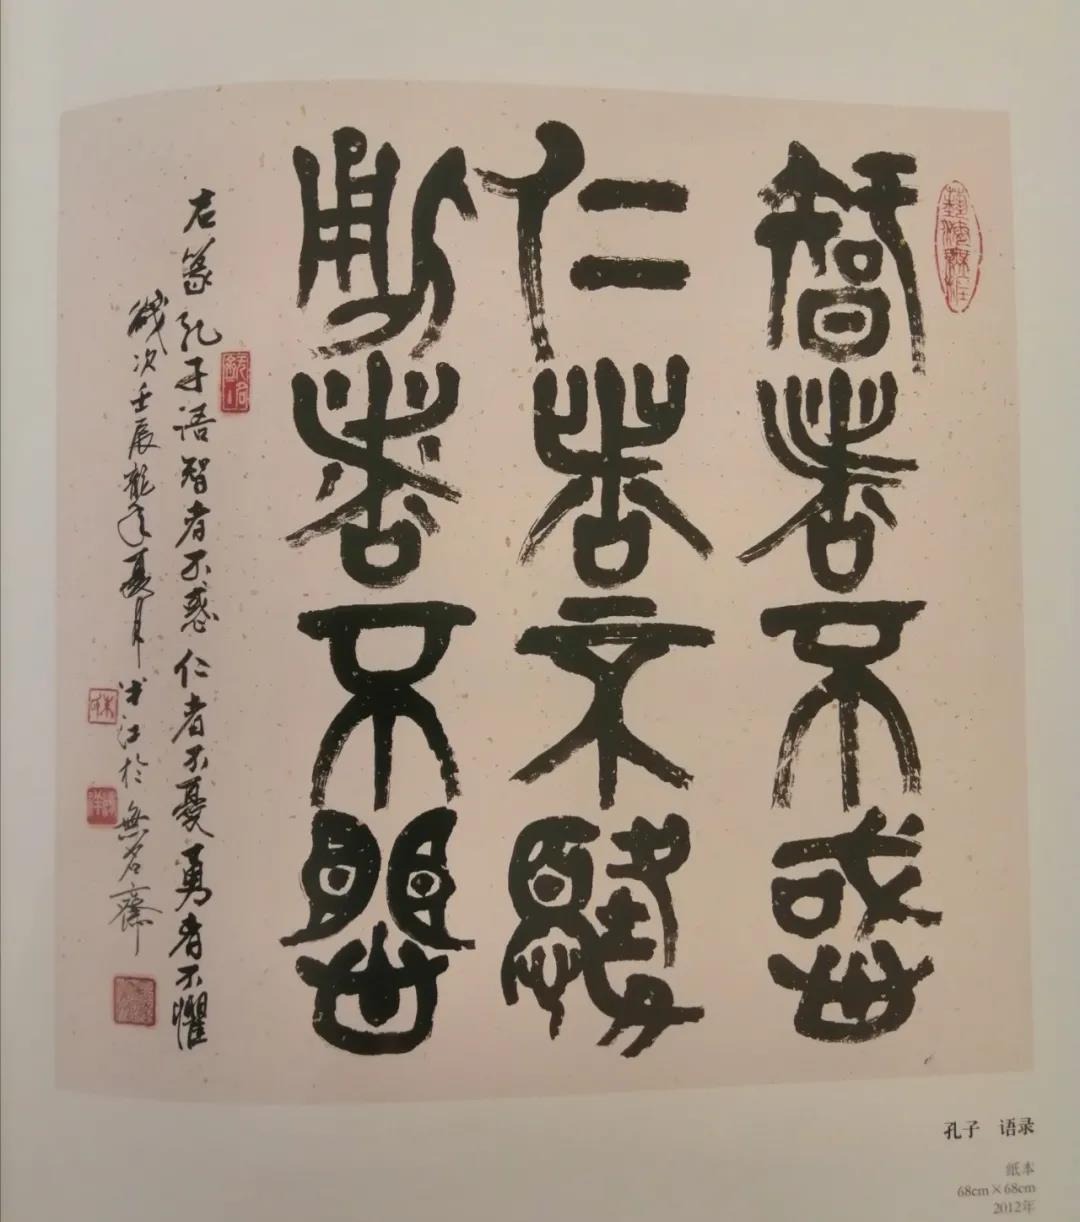 智者不惑
仁者不憂
勇者不懼
右篆孔子語智者不惑仁者不憂勇者不懼
歲次壬辰龍年夏月半江於無名齋
孔子 语录
纸本
68cm×68cm
2012年